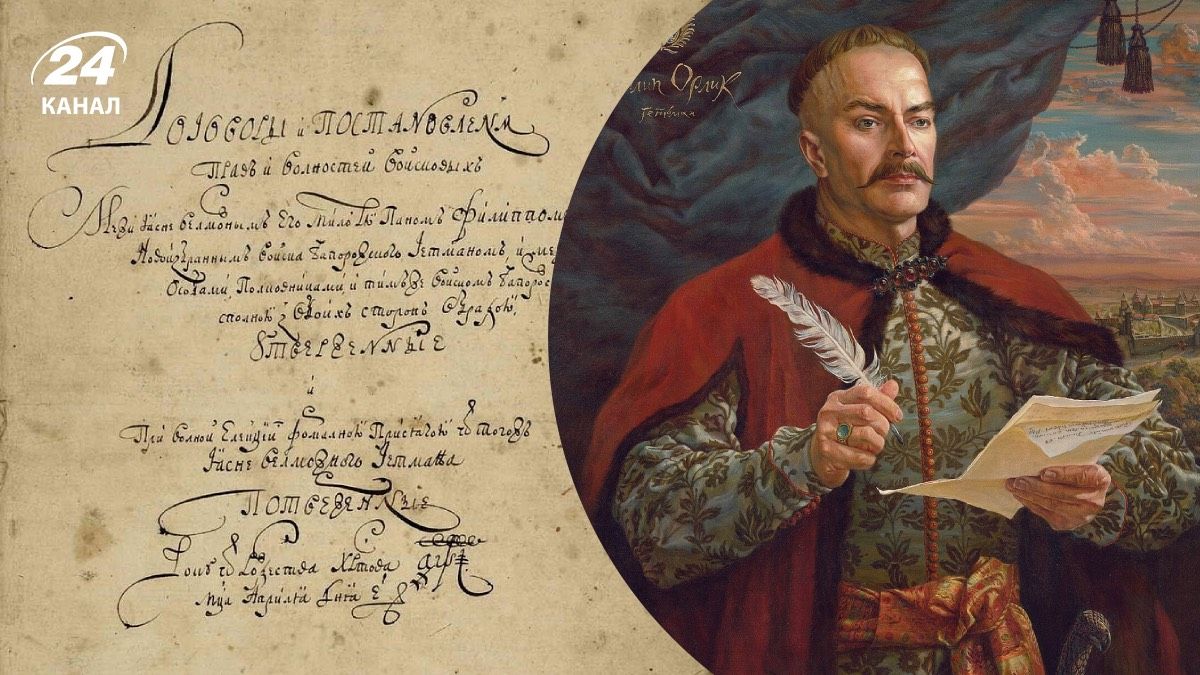 24
КАНАЛ
Договоры и Постановленїѧ
Правъ и волностей войсковыхъ
Межи Ясне велможнымъ Его милостю Паномъ Филиппом
Новоизбраннымъ войска Запорозского Гетманомъ, и меж
Особами, Полковниками, и тимъже войскомъ Запорос
сполною з обоихъ сторонъ обрадою
Утверженныіе
и
При волной Елекціи формалною Присягою ѿ тогожъ
Ясне велможного Гетмана
Потверженныіе
Року ѿ Рождества Христова аѱі
Мца Априля дня е҃
лип Орлик
Гетьман